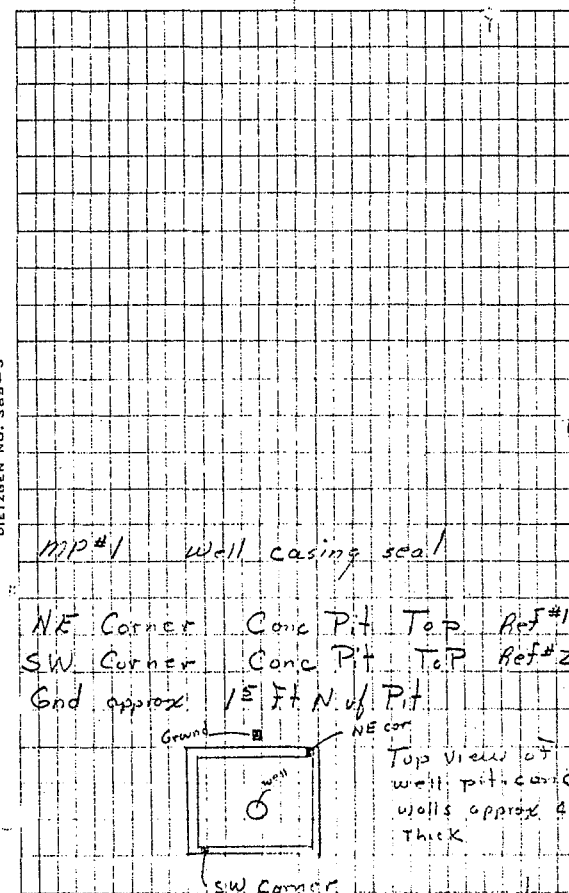 MP#1 well casing seal
NE Corner Conc Pit Top Ref#1
SW Corner Conc Pit ToP Ref#2
Gnd approx 1⁵ Ft N of Pit
Ground
NE cor
well
Top View of
well pit conc
walls approx 4
Thick
SW Corner